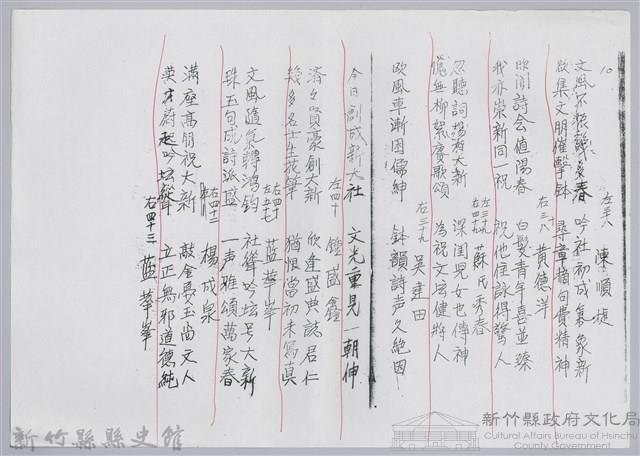 10
左三八 陳順堤
文風不振談炎春 吟社初成氣象新
欲集文朋催擊鉢 尋章摘句費精神
右三八 黃德洋
欣聞詩会值陽春 白髮青年喜並臻
我亦崇新同一祝 祝他佳詠得驚人
左三九右四九 蘇氏秀春
忽聽詞揚有大新 深閨兒女也傳神
愧無柳絮賡歌頌 為祝文坛健將人
右三九 吳建田
欧風車漸困儒紳 鉢韻詩声久絶因
今日創成新大社 文光重見一朝伸
左四十 鍾盛鑫
濟々賢豪創大新 欣逢盛典誌君仁
幾多名士生花筆 猶恨當初未寫真
右四十左五七 藍華峯
文風隨氣轉鴻鈞 社聳吟坛号大新
珠玉句成詩派盛 一声雅頌萬家春
右四二 楊成泉
滿座高朋祝大新 敲金戛玉尚文人
英才蔚起吟坛聲 立正無邪道德純
右四十三 藍華峯
新竹縣縣史館
新竹縣政府文化局
Cultural Affairs Bureau of Hsinchu
County Government